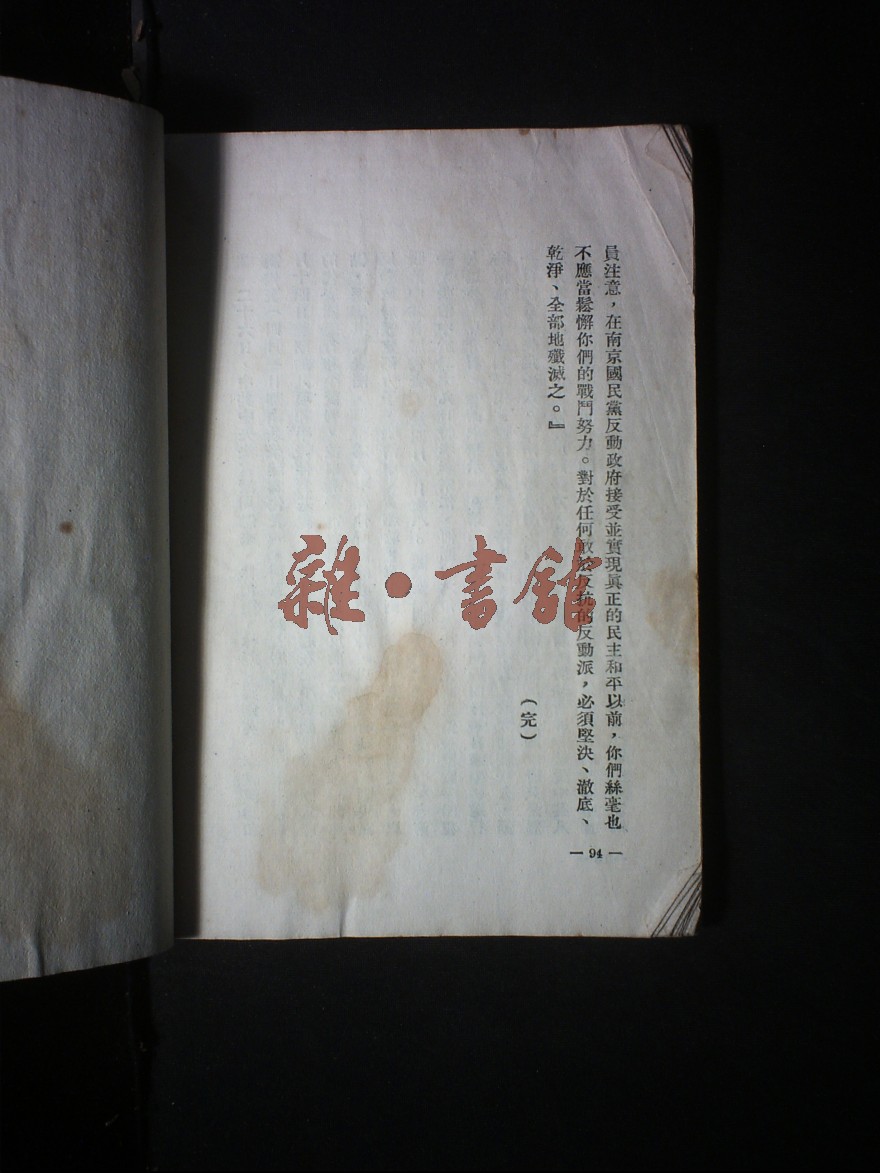 員注意，在南京國民黨反動政府接受並實現眞正的民主和平以前，你們絲毫也
不應當鬆懈你們的戰鬥努力。對於任何敢於反抗的反動派，必須堅決、澈底、
乾淨、全部地殲滅之。』
（完）
— 94 —
雜·書館